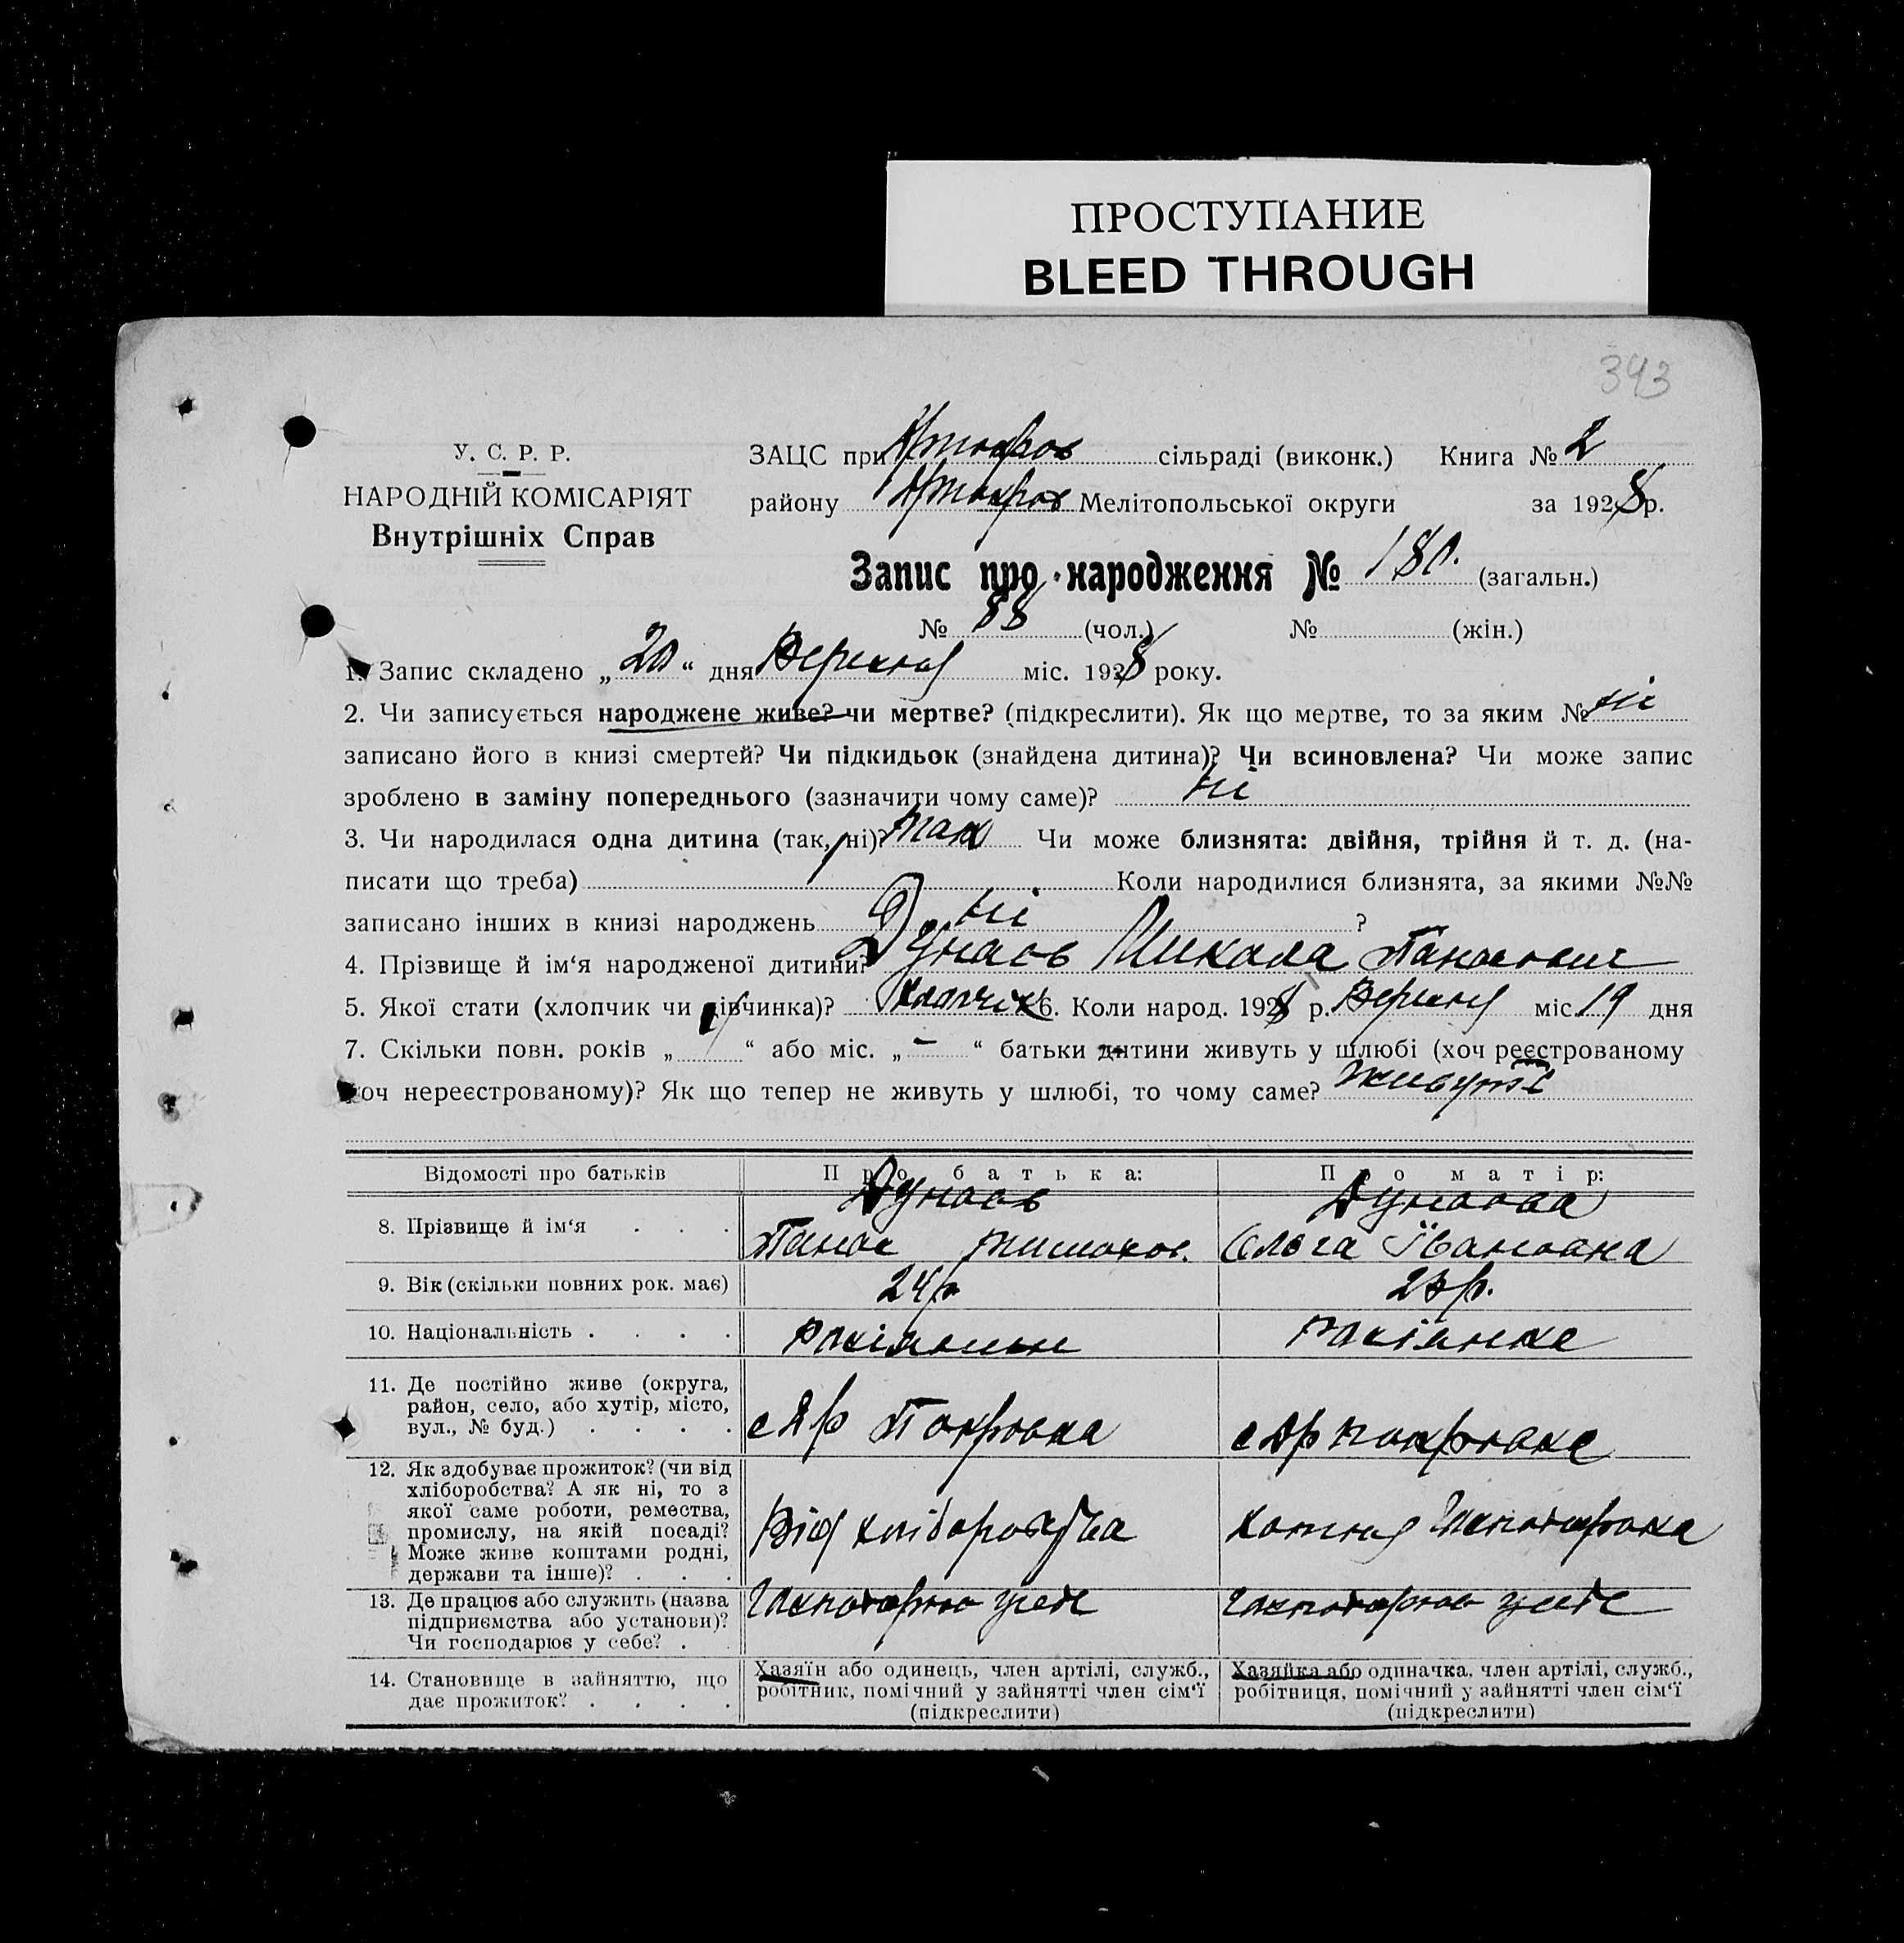 ПРОСТУПАНИЕ
BLEED THROUGH
343
У. С. Р. Р.
НАРОДНІЙ КОМІСАРІЯТ
Внутрішніх Справ
ЗАЦС при сільраді (виконк.) Книга № 2
району Мелітопольської округи за 1928 р.
Запис про народження № 180. (загальн.)
№ 88 (чол.) № (жін.)
1. Запис складено „20“ дня Вересня міс. 1928 року.
2. Чи записується народжене живе? чи мертве? (підкреслити). Як що мертве, то за яким № ні
записано його в книзі смертей? Чи підкидьок (знайдена дитина)? Чи всиновлена? Чи може запис
зроблено в заміну попереднього (зазначити чому саме)? ні
3. Чи народилася одна дитина (так, ні)? так Чи може близнята: двійня, трійня й т. д. (на-
писати що треба) Коли народилися близнята, за якими №№
записано інших в книзі народжень ні ?
4. Прізвище й ім‘я народженої дитини? Дунаєв Микола Панасович
5. Якої стати (хлопчик чи дівчинка)? Хлопчик 6. Коли народ. 1928 р. Вересня міс. 19 дня
7. Скільки повн. років „ 1 “ або міс. „ – “ батьки дитини живуть у шлюбі (хоч реєстрованому
хоч нереєстрованому)? Як що тепер не живуть у шлюбі, то чому саме? живуть
Відомості про батьків Про батька: Про матір:
8. Прізвище й ім‘я . . . Дунаєв Дунаєва
Панас Тимохов. Ольга Івановна
9. Вік (скільки повних рок. має) 24 р 23 р.
10. Національність . . . . росіянин росіянка
11. Де постійно живе (округа,
район, село, або хутір, місто,
вул., № буд.) . . . . с Покровка с покровка
12. Як здобуває прожиток? (чи від
хліборобства? А як ні, то з
якої саме роботи, ремества,
промислу, на якій посаді?
Може живе коштами родні,
держави та інше)? . . . Від хліборобства
13. Де працює або служить (назва
підприємства або установи)?
Чи господарює у себе? . .
14. Становище в зайняттю, що
дає прожиток? . . . .
Хазяїн або одинець, член артілі, служб.,
робітник, помічний у зайнятті член сім‘ї
(підкреслити)
Хазяйка або одиначка, член артілі, служб.,
робітниця, помічний у зайнятті член сім‘ї
(підкреслити)